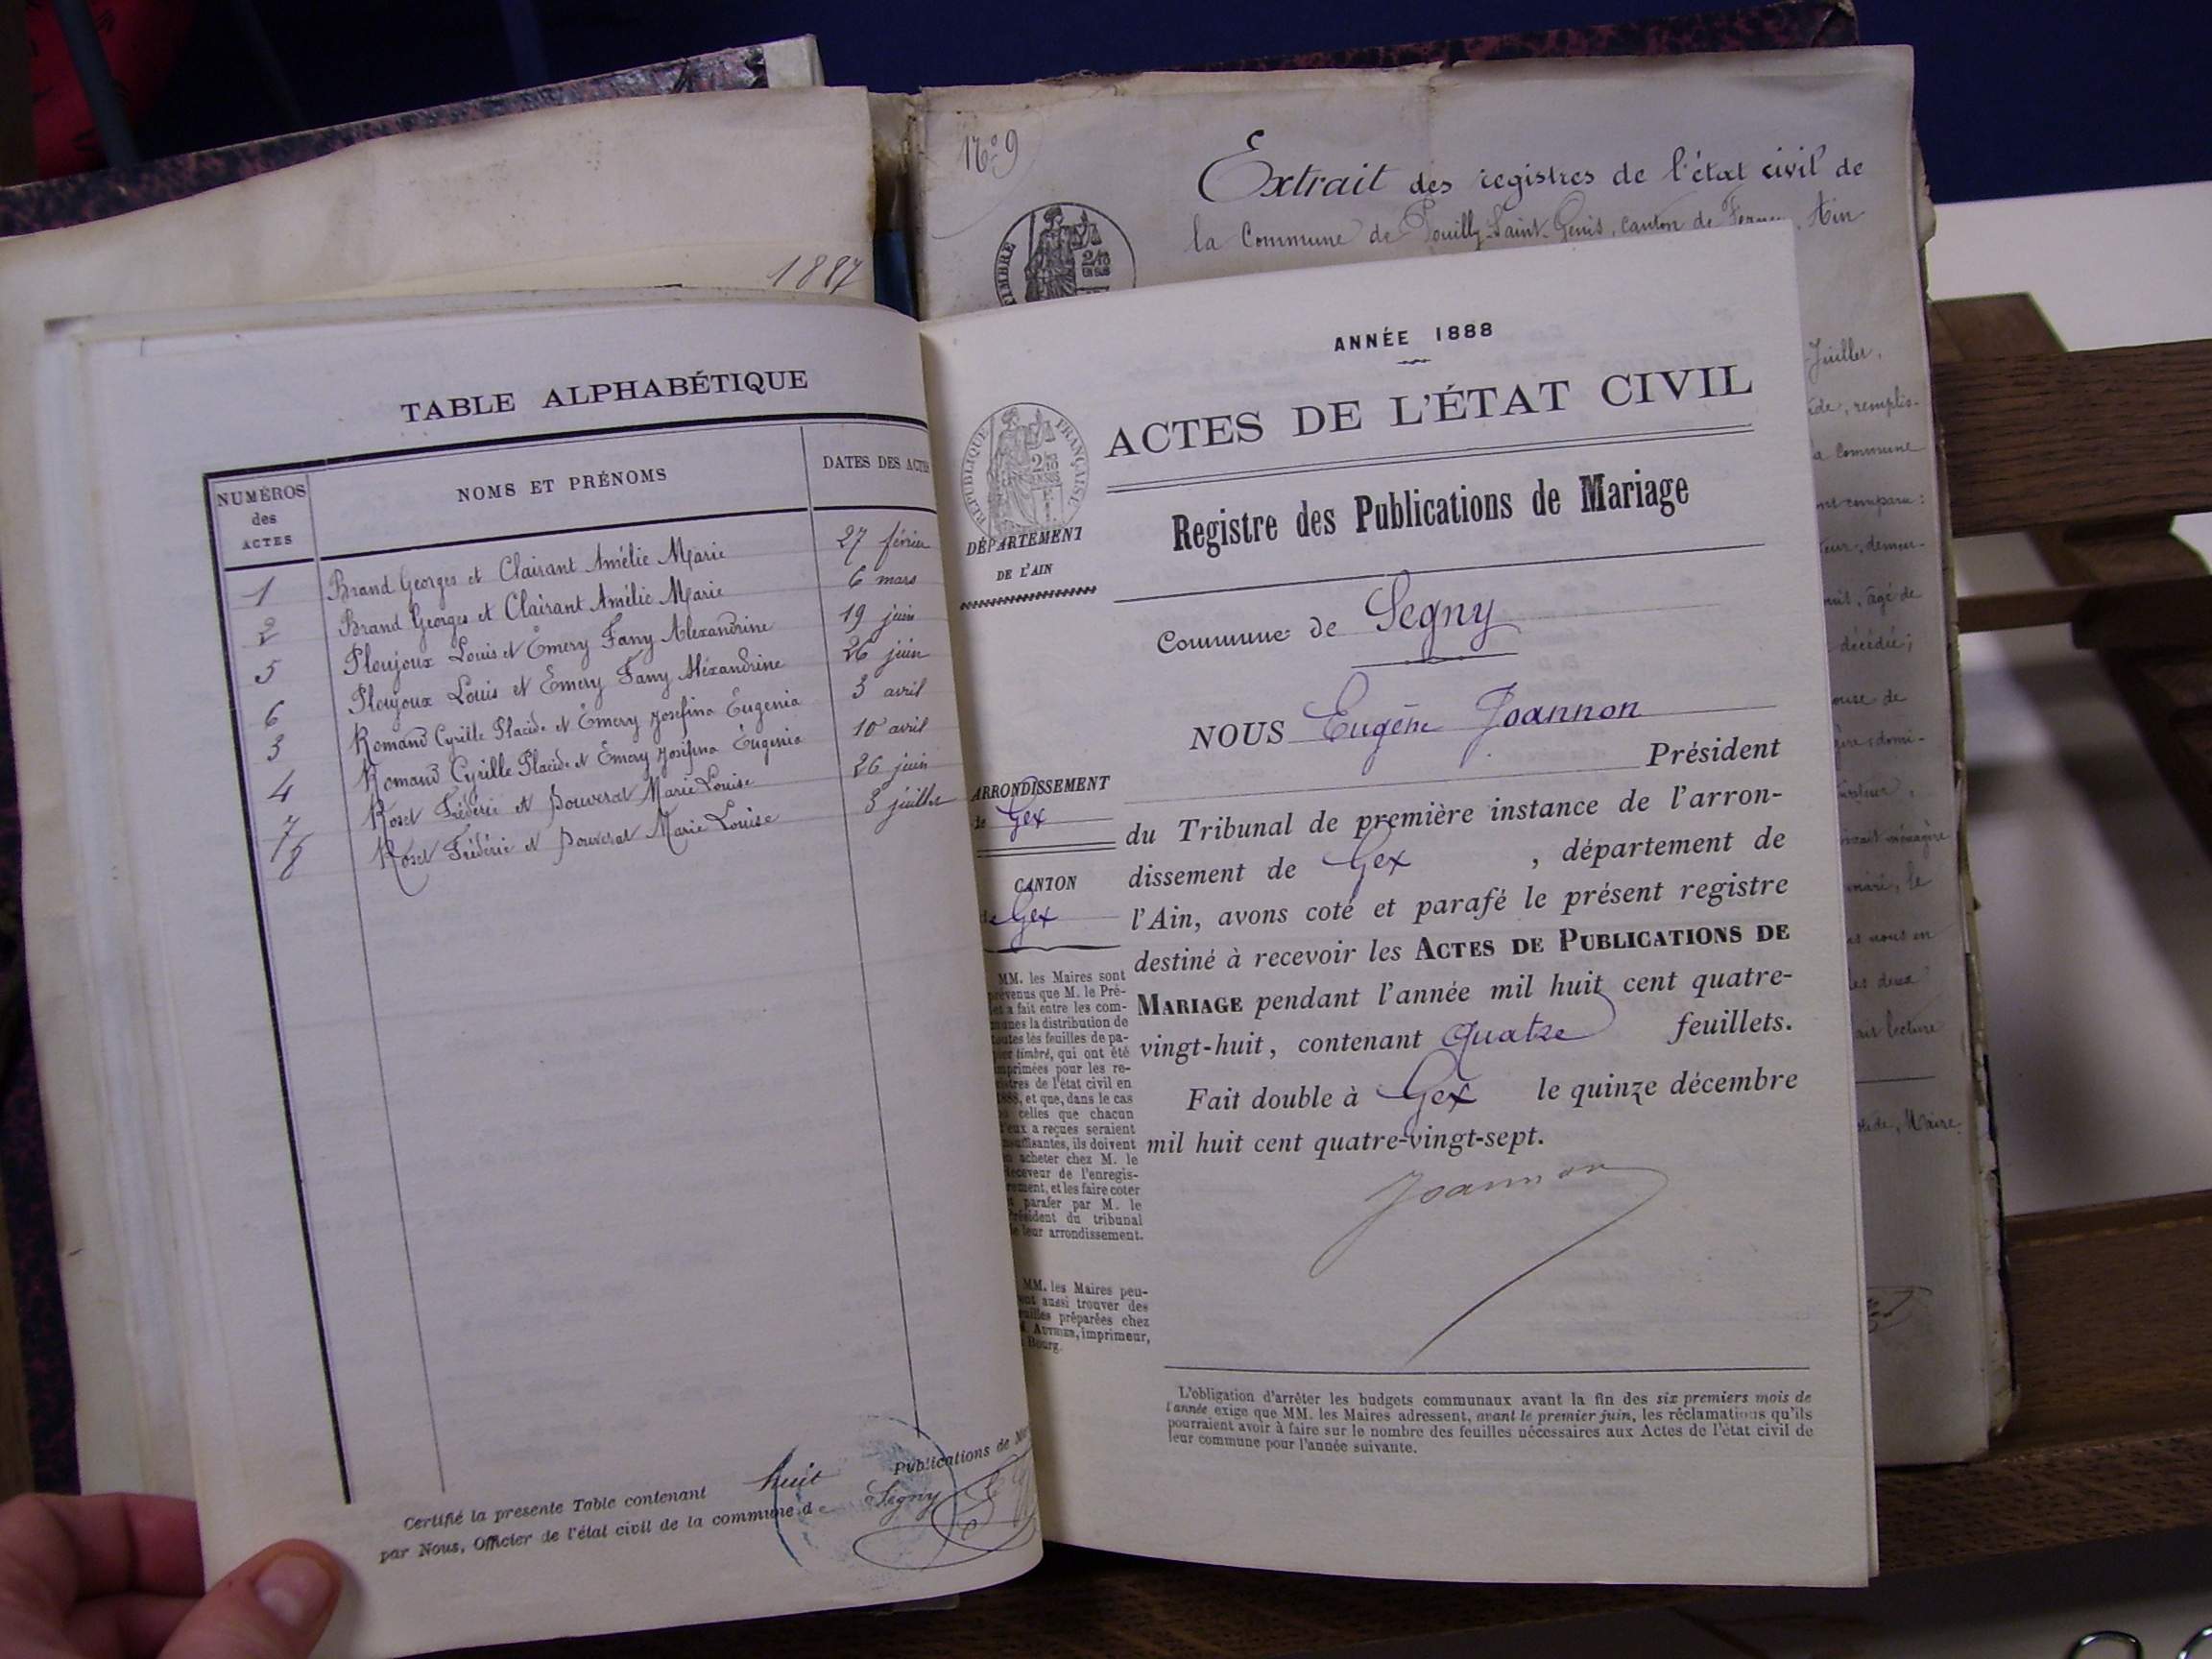 1887
TABLE ALPHABÉTIQUE
NUMÉROS des ACTES
NOMS ET PRÉNOMS
DATES DES ACTES
1 Brand Georges et Clairant Amélie Marie 27 février
2 Brand Georges et Clairant Amélie Marie 6 mars
5 Ploujoux Louis et Emery Fany Alexandrine 19 juin
6 Ploujoux Louis et Emery Fany Aléxandrine 26 juin
3 Romand Cyrille Placide et Emery Josefina Eugenia 3 avril
4 Romand Cyrille Placide et Emery Josefina Eugenia 10 avril
7 Roset Frédéric et Pouverat Marie Louise 26 juin
8 Roset Frédéric et Pouverat Marie Louise 3 juillet
Certifié la présente Table contenant huit Publications de
par Nous, Officier de l'état civil de la commune de Segny
N° 9
Extrait des registres de l'état civil de
la Commune de Pouilly-Saint-Genis, canton de Ferney, Ain
TIMBRE
ANNÉE 1888
ACTES DE L'ÉTAT CIVIL
RÉPUBLIQUE FRANÇAISE
Registre des Publications de Mariage
DÉPARTEMENT
DE L'AIN
Commune de Segny
NOUS Eugène Joannon
Président
du Tribunal de première instance de l'arron-
dissement de Gex, département de
l'Ain, avons coté et parafé le présent registre
destiné à recevoir les ACTES DE PUBLICATIONS DE
MARIAGE pendant l'année mil huit cent quatre-
vingt-huit, contenant quatre feuillets.
Fait double à Gex le quinze décembre
mil huit cent quatre-vingt-sept.
Joannon
ARRONDISSEMENT
de Gex
CANTON
de Gex
MM. les Maires sont
prévenus que M. le Pré-
fet a fait entre les com-
munes la distribution de
toutes les feuilles de pa-
pier timbré, qui ont été
imprimées pour les re-
gistres de l'état civil en
1888, et que, dans le cas
où celles que chacun
d'eux a reçues seraient
insuffisantes, ils doivent
en acheter chez M. le
Receveur de l'enregis-
trement, et les faire coter
et parafer par M. le
Président du tribunal
de leur arrondissement.
MM. les Maires peu-
vent aussi trouver des
feuilles préparées chez
M. AUTHIER, imprimeur,
à Bourg.
L'obligation d'arrêter les budgets communaux avant la fin des six premiers mois de
l'année exige que MM. les Maires adressent, avant le premier juin, les réclamations qu'ils
pourraient avoir à faire sur le nombre des feuilles nécessaires aux Actes de l'état civil de
leur commune pour l'année suivante.
Juillet,
remplis-
la Commune
comparu :
demeu-
âgé de
décédée ;
de
domi-
ménagère
le
nous en
les deux
lecture
Maire